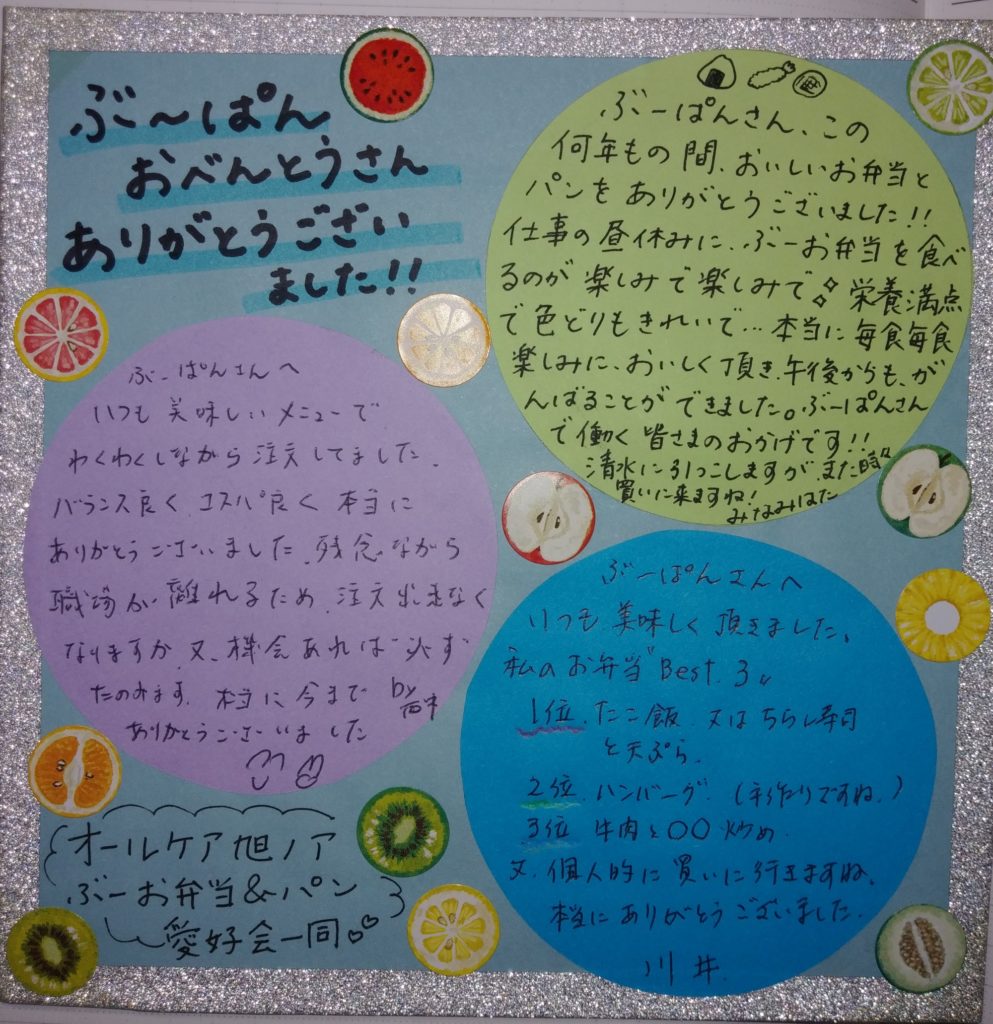 ぶ〜ぱん
おべんとうさん
ありがとうござい
ました!!
ぶーぱんさん、この
何年もの間、おいしいお弁当と
パンをありがとうございました!!
仕事の昼休みに、ぶーお弁当を食べ
るのが楽しみで楽しみで 栄養満点
で色どりもきれいで…本当に毎食毎食
楽しみに、おいしく頂き、午後からも、が
んばることができました。ぶーぱんさん
で働く皆さまのおかげです!!
清水に引っこしますが、また時々
買いに来ますね!
みなみはた
ぶーぱんさんへ
いつも美味しいメニューで
わくわくしながら注文してました。
バランス良く、コスパ良く本当に
ありがとうございました。残念ながら
職場が離れるため、注文出来なく
なりますが、又、機会あれば必ず
たのみます。本当に今まで by
ありがとうございました
ぶーぱんさんへ
いつも美味しく頂きました。
私のお弁当Best 3
1位、たこ飯 又はちらし寿司
と天ぷら。
2位、ハンバーグ (手作りですね。)
3位 牛肉と〇〇炒め。
又、個人的に買いに行きますね。
本当にありがとうございました。
川井
オールケア旭ノア
ぶーお弁当&パン
愛好会一同